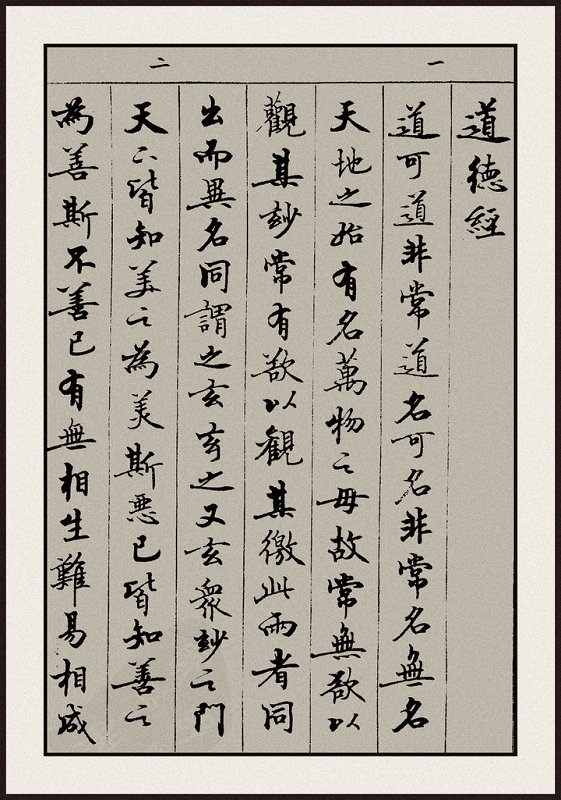 一
二
道德經
道可道非常道名可名非常名無名
天地之始有名萬物之毋故常無欲以
觀其玅常有欲以觀其徼此兩者同
出而異名同謂之玄玄之又玄衆玅之門
天下皆知美之為美斯惡已皆知善之
為善斯不善已有無相生難易相成